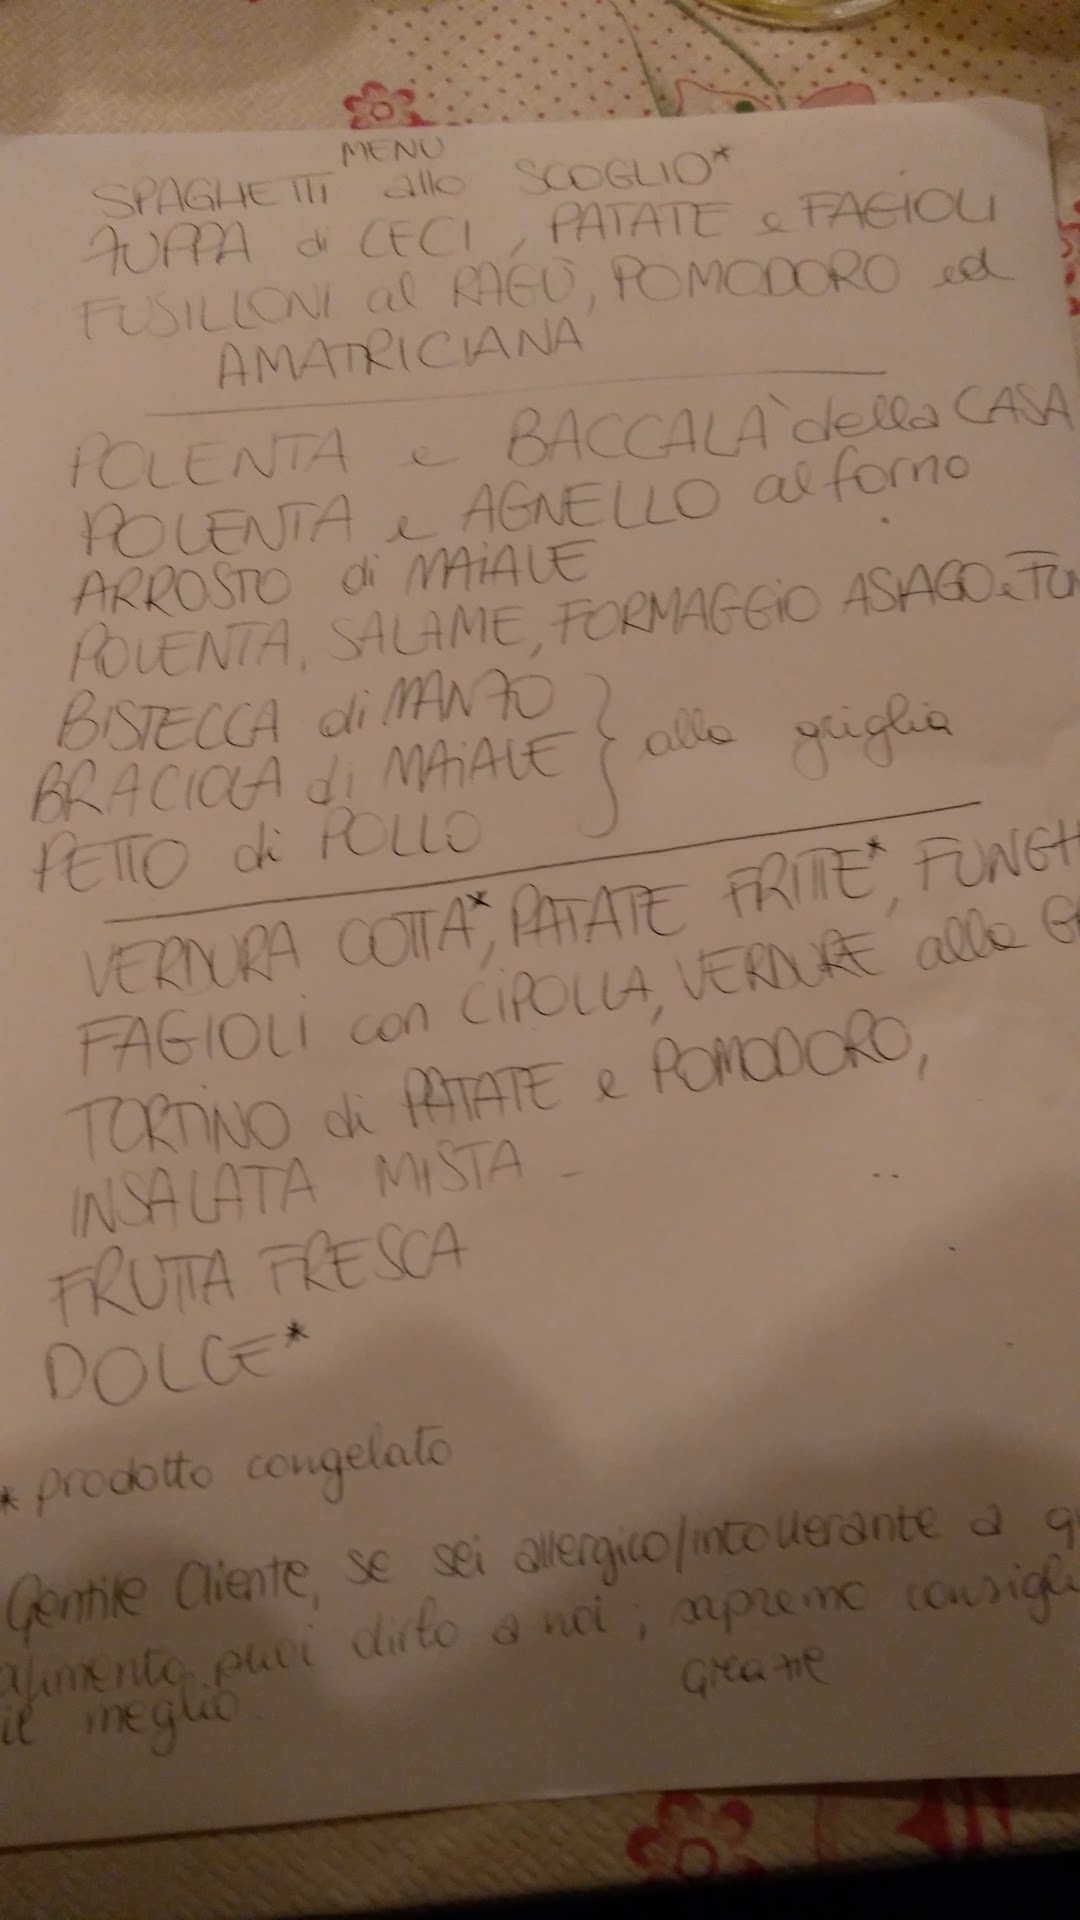 MENU
SPAGHETTI allo SCOGLIO*
ZUPPA di CECI, PATATE e FAGIOLI
FUSILLONI al RAGÙ, POMODORO ed
AMATRICIANA
POLENTA e BACCALÀ della CASA
POLENTA e AGNELLO al forno
ARROSTO di MAIALE
POLENTA, SALAME, FORMAGGIO ASIAGO e
BISTECCA di MANZO
BRACIOLA di MAIALE } alla griglia
PETTO di POLLO
VERDURA COTTA*, PATATE FRITTE*, FUNGH
FAGIOLI con CIPOLLA, VERDURE alla
TORTINO di PATATE e POMODORO,
INSALATA MISTA -
FRUTTA FRESCA
DOLCE*
* prodotto congelato
Gentile Cliente, se sei allergico/intollerante a
alimento puoi dirlo a noi; sapremo consigli
il meglio. Grazie